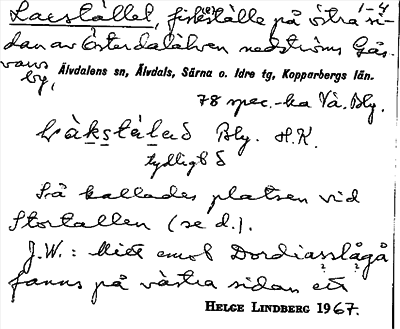 Laxstället, fiskställe på östra si- 1-4
dan av Österdalälven nedströms Gås-
vars
by, Älvdalens sn, Älvdals, Särna o. Idre tg, Kopparbergs län.
78 spec.-ka Vå. Bly.
Bly. H.K.
tydligt ö
Så kallades platsen vid
Stortallen (se d.).
J.W.: Mitt emot Dordiasslågå
fanns på västra sidan ett
HELGE LINDBERG 1967.